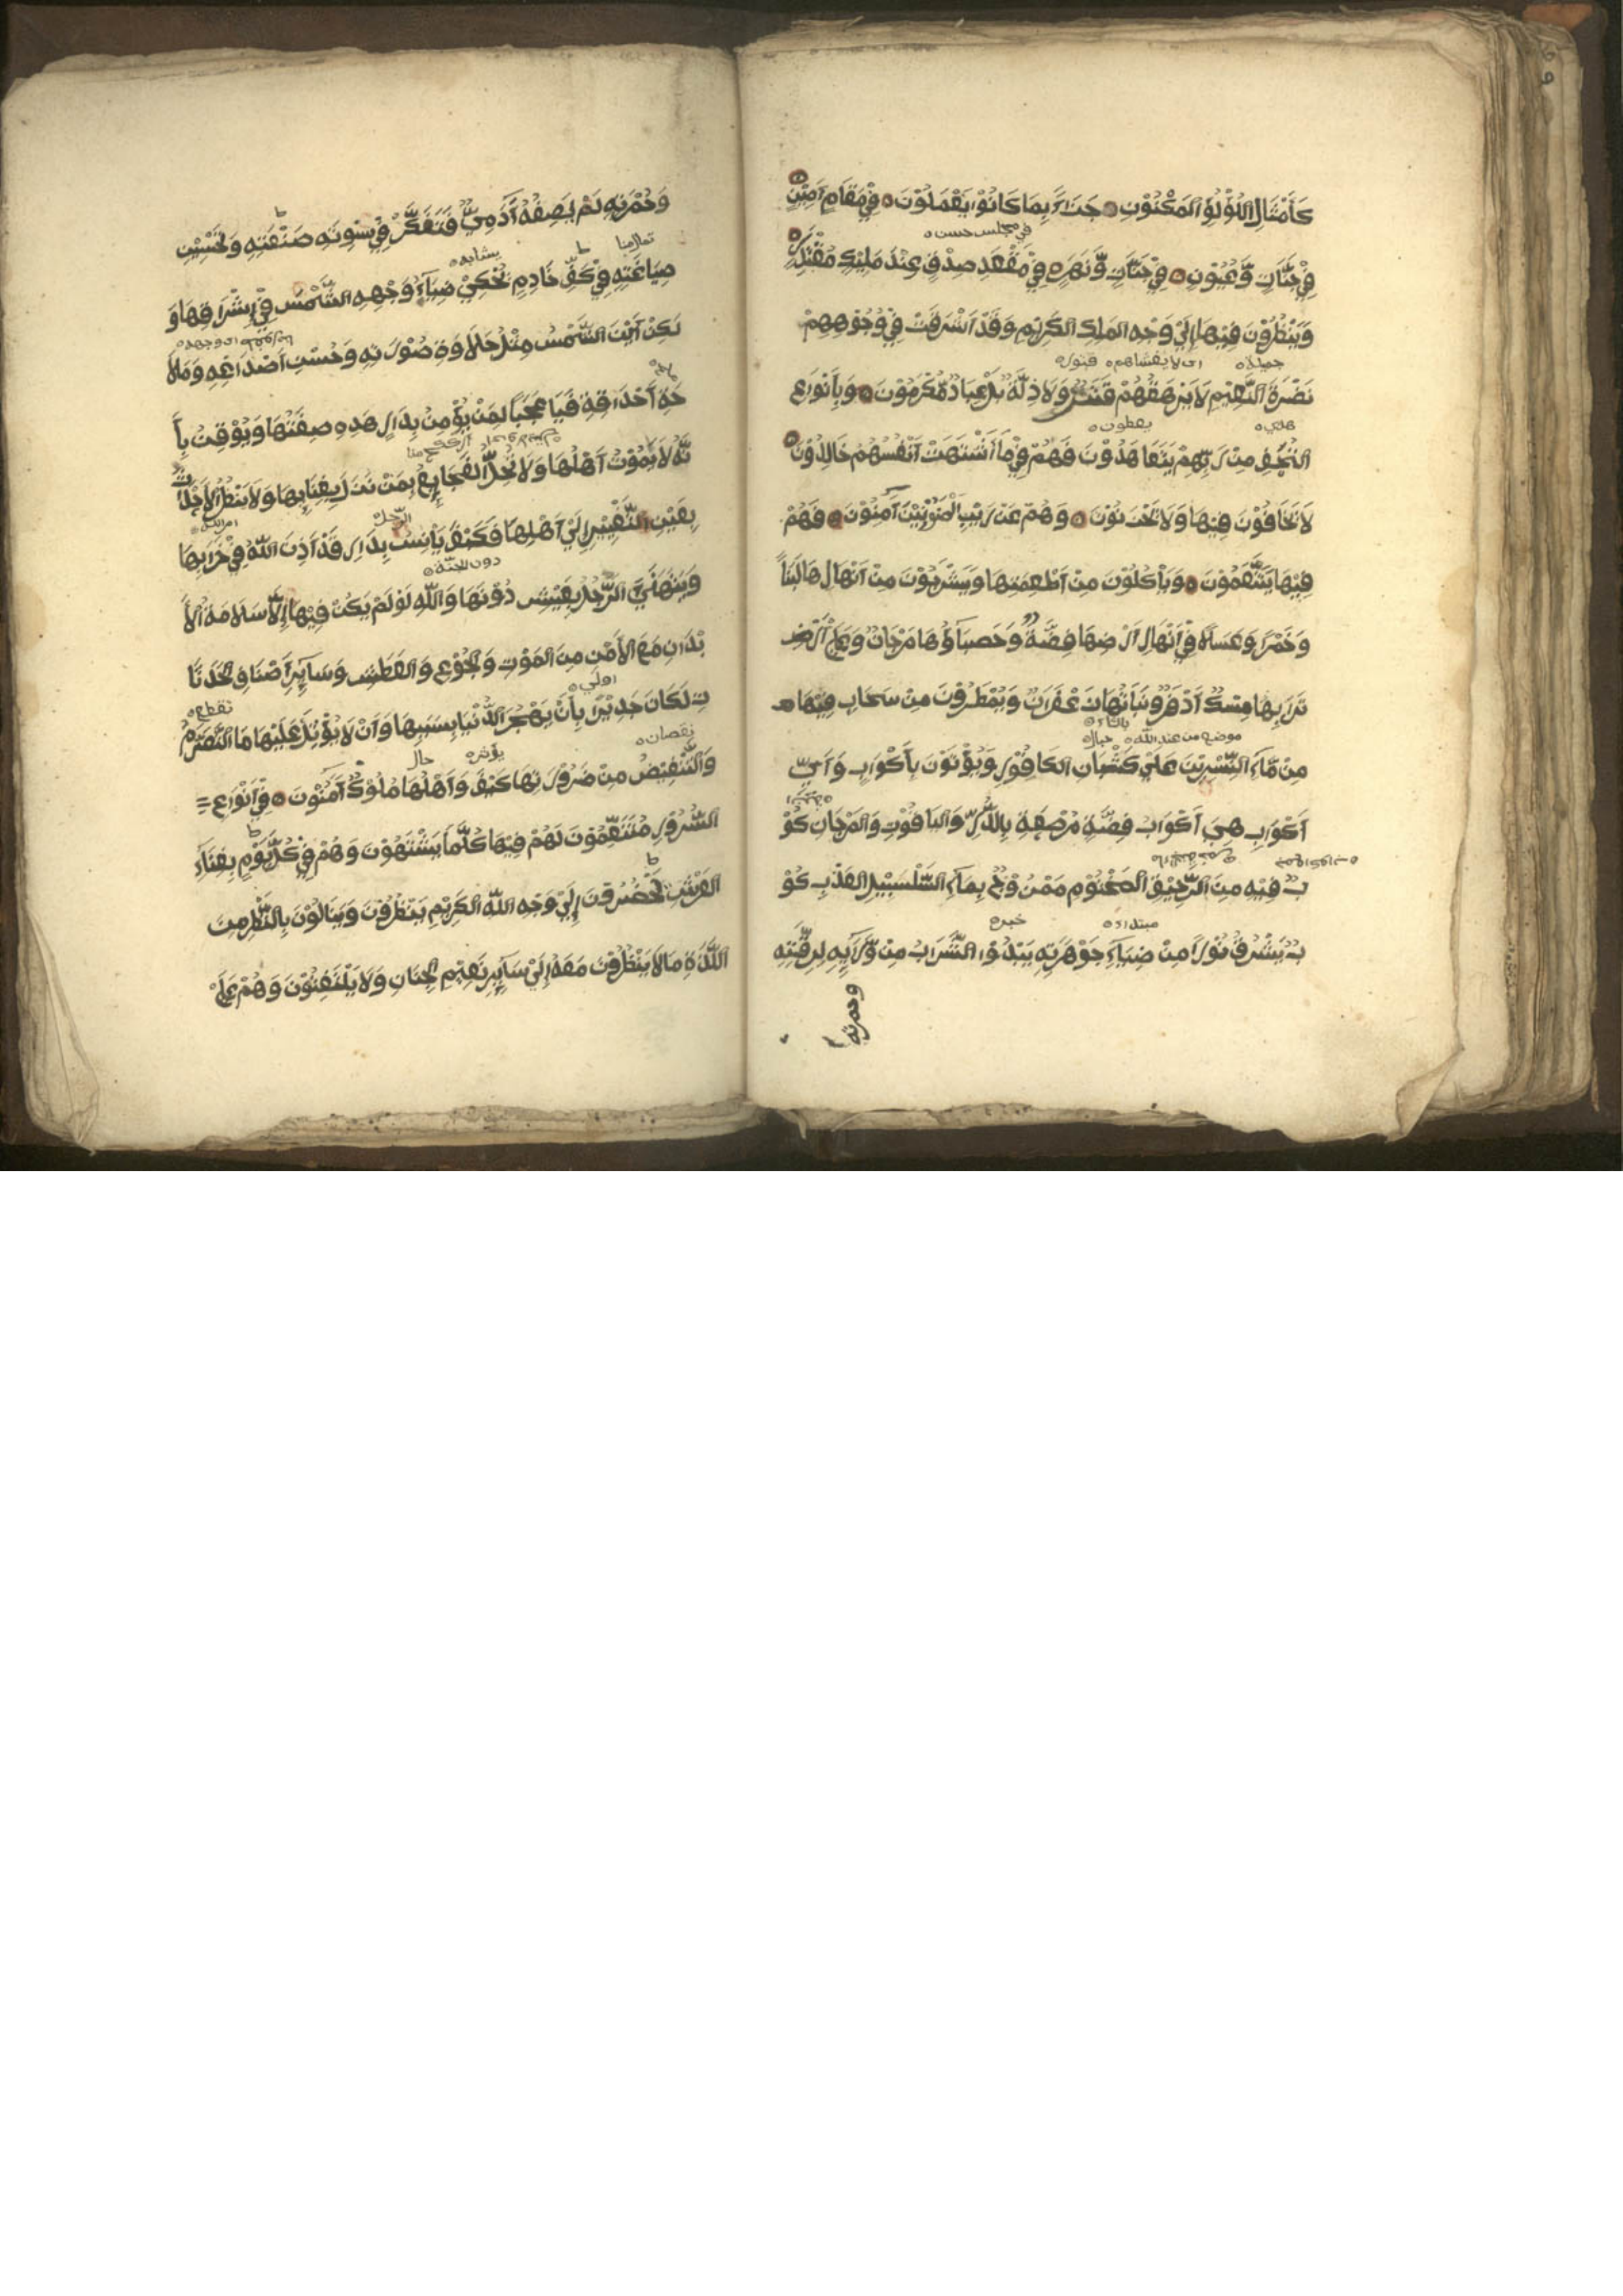 كَأَمْثَالِ اللُّؤْلُؤِ الْمَكْنُوْنِ ۝ جَزَاءً بِمَا كَانُوْا يَعْمَلُوْنَ ۝ فِيْ مَقَامٍ اَمِيْنٍ ۝
فِيْ جَنَّاتٍ وَّعُيُوْنٍ ۝ فِيْ جَنَّاتٍ وَّنَهَرٍ ۝ فِيْ مَقْعَدِ صِدْقٍ عِنْدَ مَلِيْكٍ مُقْتَدِرٍ ۝
في مجلس حسن
وَيَنْظُرُوْنَ فِيْهَا اِلَيْ وَجْهِ الْمَلِكِ الْكَرِيْمِ وَقَدْ اَشْرَقَتْ فِيْ وُجُوْهِهِمْ
نَضْرَةُ النَّعِيْمِ لَا يَرْهَقُهُمْ قَتَرٌ وَلَا ذِلَّةٌ بَلْ عِبَادٌ مُكْرَمُوْنَ ۝ وَبِاَنْوَاعِ
جميلة اى لا يغشاهم
التُّحَفِ مِنْ رَبِّهِمْ يَتَعَاهَدُوْنَ فَهُمْ فِيْمَا اشْتَهَتْ اَنْفُسُهُمْ خَالِدُوْنَ ۝
هدي يعطون
لَا يَخَافُوْنَ فِيْهَا وَلَا يَحْزَنُوْنَ ۝ وَهُمْ عَنْ رَيْبِ الْمَنُوْنِ آمِنُوْنَ ۝ فَهُمْ
فِيْهَا يَتَنَعَّمُوْنَ ۝ وَيَأْكُلُوْنَ مِنْ اَطْعِمَتِهَا وَيَشْرَبُوْنَ مِنْ اَنْهَارِهَا لَبَنًا
وَخَمْرًا وَعَسَلًا فِيْ اَنْهَارٍ اَرْضُهَا فِضَّةٌ وَحَصْبَاؤُهَا مَرْجَانٌ وَعَلَيْ اَرْضٍ
تُرَابُهَا مِسْكٌ اَذْفَرُ وَنَبَاتُهَا زَعْفَرَانٌ وَيُمْطَرُوْنَ مِنْ سَحَابٍ فِيْهَا
مِنْ مَّاءِ النِّسْرِيْنَ عَلَيْ كُثْبَانِ الْكَافُوْرِ وَيُؤْتَوْنَ بِاَكْوَابٍ وَاَيُّ
موضع من عند الله جبال بالثاء
اَكْوَابٍ هِيَ اَكْوَابُ فِضَّةٍ مُرَصَّعَةٍ بِالدُّرِّ وَالْيَاقُوْتِ وَالْمَرْجَانِ كُوْ
بٌ فِيْهِ مِنَ الرَّحِيْقِ الْمَخْتُوْمِ مَمْزُوْجٌ بِمَاءِ السَّلْسَبِيْلِ الْعَذْبِ كُوْ
بٌ يَشْرُقُ نُوْرًا مِنْ ضِيَاءِ جَوْهَرَتِهِ يَبْدُوْا الشَّرَابُ مِنْ وَّرَآئِهِ لِرِقَّتِهِ
مبتداء خبر
وحمرته
وَحُمْرَتِهِ لَمْ يَصِفْهُ آدَمِيٌّ فَتَفَكَّرْ فِيْ تَسْوِيَةِ صَنْعَتِهِ وَتَحْسِيْنِ
صِيَاغَتِهِ فِيْ كَفِّ خَادِمٍ تُحْكِيْ ضِيَآءُ وَجْهِهِ الشَّمْسَ فِيْ اِشْرَاقِهَا وَ
يشابه
لَكِنْ اَيْنَ الشَّمْسُ مِثْلُ حَلَاوَةِ صُوْرَتِهِ وَحُسْنِ اَصْدَاغِهِ وَمَلَا
حَةِ اَحْدَاقِهِ فَيَا عَجَبًا لِمَنْ يُؤْمِنُ بِدَارٍ هَذِهِ صِفَتُهَا وَيُوْقِنُ بِاَ
نَّهُ لَا يَمُوْتُ اَهْلُهَا وَلَا تَحُلُّ الْفَجَايِعُ بِمَنْ نَزَلَ بِفِنَائِهَا وَلَا يَنْظُرُ الْاَحْدَاثُ
بِعَيْنِ التَّغْيِيْرِ اِلَيْ اَهْلِهَا فَكَيْفَ يَأْنَسُ بِدَارٍ قَدْ اَذِنَ اللّٰهُ فِيْ خَرَابِهَا
الرجل امر الله
وَيَتَهَنَّيُ الرَّجُلُ بِعَيْشٍ دُوْنَهَا وَاللّٰهِ لَوْ لَمْ يَكُنْ فِيْهَا اِلَّا سَلَامَةُ الْاَ
دون الجنة
بْدَانِ مَعَ الْاَمْنِ مِنَ الْمَوْتِ وَالْجُوْعِ وَالْعَطَشِ وَسَآئِرِ اَصْنَافِ الْحَدَثَا
نِ لَكَانَ جَدِيْرًا بِاَنْ يَهْجُرَ الدُّنْيَا بِسَبَبِهَا وَاَنْ لَا يُؤْثِرَ عَلَيْهَا مَا التَّصَرُّمُ
اولي تقطع
وَالتَّنْغِيْصُ مِنْ ضَرُوْرَتِهَا كَيْفَ وَاَهْلُهَا مُلُوْكٌ آمِنُوْنَ ۝ فِيْ اَنْوَاعِ
نقصان يؤثر حال
السُّرُوْرِ مُتَنَعِّمُوْنَ لَهُمْ فِيْهَا كُلُّمَا يَشْتَهُوْنَ وَهُمْ فِيْ كُلِّ يَوْمٍ بِفِنَاءِ
الْعَرْشِ يَحْضُرُوْنَ اِلَيْ وَجْهِ اللّٰهِ الْكَرِيْمِ يَنْظُرُوْنَ وَيَنَالُوْنَ بِالنَّظَرِ مِنَ
اللّٰهِ مَا لَا يَنْظُرُوْنَ مَعَهُ اِلَيْ سَآئِرِ نَعِيْمِ الْجِنَانِ وَلَا يَلْتَفِتُوْنَ وَهُمْ عَلَيْ